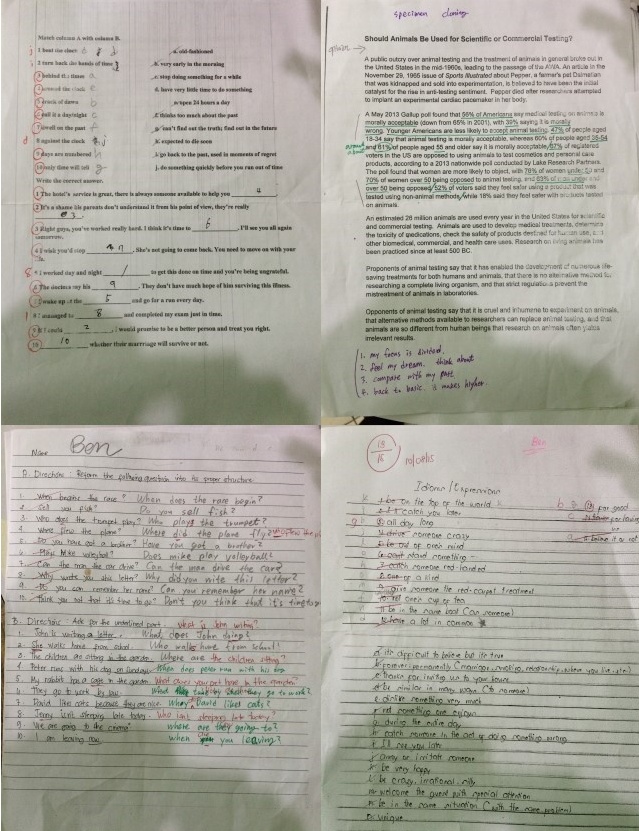 Match column A with column B.
1 beat the clock
a. old-fashioned
2 turn back the hands of time
b. very early in the morning
behind the times
c. stop doing something for a while
around the clock
d. have very little time to do something
crack of dawn
e. open 24 hours a day
call it a day/night
f. thinks too much about the past
dwell on the past
g. can't find out the truth; find out in the future
8 against the clock
h. expected to die soon
days are numbered
i. go back to the past, used in moments of regret
only time will tell
j. do something quickly before you run out of time
Write the correct answer.
1 The hotel's service is great, there is always someone available to help you 4
2 It's a shame his parents don't understand it from his point of view, they're really
3.
3 Right guys, you've worked really hard. I think it's time to 6. I'll see you all again
tomorrow.
4 I wish you'd stop 7. She's not going to come back. You need to move on with your
life.
5 I worked day and night 1 to get this done on time and you're being ungrateful.
6 The doctors say his 9. They don't have much hope of him surviving this illness.
7 I woke up at the 5 and go for a run every day.
8 I managed to 8 and completed my exam just in time.
9 If I could 2, I would promise to be a better person and treat you right.
10 10 whether their marriage will survive or not.
specimen cloning
Should Animals Be Used for Scientific or Commercial Testing?
A public outcry over animal testing and the treatment of animals in general broke out in
the United States in the mid-1960s, leading to the passage of the AWA. An article in the
November 29, 1965 issue of Sports Illustrated about Pepper, a farmer's pet Dalmatian
that was kidnapped and sold into experimentation, is believed to have been the initial
catalyst for the rise in anti-testing sentiment. Pepper died after researchers attempted
to implant an experimental cardiac pacemaker in her body.
A May 2013 Gallup poll found that 56% of Americans say medical testing on animals is
morally acceptable (down from 65% in 2001), with 39% saying it is morally
wrong. Younger Americans are less likely to accept animal testing. 47% of people aged
18-34 say that animal testing is morally acceptable, whereas 60% of people aged 35-54
and 61% of people aged 55 and older say it is morally acceptable. 67% of registered
voters in the US are opposed to using animals to test cosmetics and personal care
products, according to a 2013 nationwide poll conducted by Lake Research Partners.
The poll found that women are more likely to object, with 76% of women under 50 and
70% of women over 50 being opposed to animal testing, and 63% of men under and
over 50 being opposed. 52% of voters said they feel safer using a product that was
tested using non-animal methods, while 18% said they feel safer with products tested
on animals.
An estimated 26 million animals are used every year in the United States for scientific
and commercial testing. Animals are used to develop medical treatments, determine
the toxicity of medications, check the safety of products destined for human use, and
other biomedical, commercial, and health care uses. Research on living animals has
been practiced since at least 500 BC.
Proponents of animal testing say that it has enabled the development of numerous life-
saving treatments for both humans and animals, that there is no alternative method for
researching a complete living organism, and that strict regulations prevent the
mistreatment of animals in laboratories.
Opponents of animal testing say that it is cruel and inhumane to experiment on animals,
that alternative methods available to researchers can replace animal testing, and that
animals are so different from human beings that research on animals often yields
irrelevant results.
1. my focus is divided.
2. feel my dream. think about
3. compare with my past
4. back to basic. is makes higher.
Name Ben
A. Directions: Reform the following question into its proper structure.
1. When begins the race? When does the race begin?
2. Sell you fish? Do you sell fish?
3. Who does the trumpet play? Who plays the trumpet?
4. Where flew the plane? Where did the plane fly?
5. Do you have got a brother? Have you got a brother?
6. Play Mike volleyball? Does mike play volleyball?
7. Can the man the car drive? Can the man drive the car?
8. Why wrote you this letter? Why did you write this letter?
9. Do you can remember her name? Can you remember her name?
10. Think you not that it's time to go? Don't you think that it's time to go
B. Directions: Ask for the underlined part. What is John writing?
1. John is writing a letter. What does John dying?
2. She walks home from school. Who walks home from school?
3. The children are sitting in the garden. Where are the children sitting?
4. Peter runs with his dog on Sundays. When does peter run with his dog
5. My rabbit has a cage in the garden.
6. They go to work by bus. they go to work?
7. David likes cats because they are nice. Why David likes cats?
8. Jenny isn't sleeping late today. Who isn't sleeping late today?
9. We are going to the cinema. where are they going to?
10. I am leaving now. when are you leaving?
13/15
10/08/15
Ben
Idioms/Expressions
k 1. be on the top of the world
l 2. catch you later
g 3. all day long
j 4. drive someone crazy
5. be out of one's mind
6. can't stand something
h 7. catch someone red-handed
8. one of a kind
9. give someone the red-carpet treatment
10. not one's cup of tea
11. be in the same boat (as someone)
d 12. have a lot in common
b 13 for good
c 14 for having
me
a 15 believe it or not
a. it's difficult to believe but it's true
b. forever; permanently
c. thanks for inviting us to your house
d. be similar in many ways (to someone)
e. dislike something very much
f. not something one enjoys
g. during the entire day
h. catch someone in the act of doing something wrong
i. I'll see you later
j. annoy or irritate someone
k. be very happy
l. be crazy, irrational, silly
m. welcome the guest with special attention
n. be in the same situation (with the same problem)
o. unique